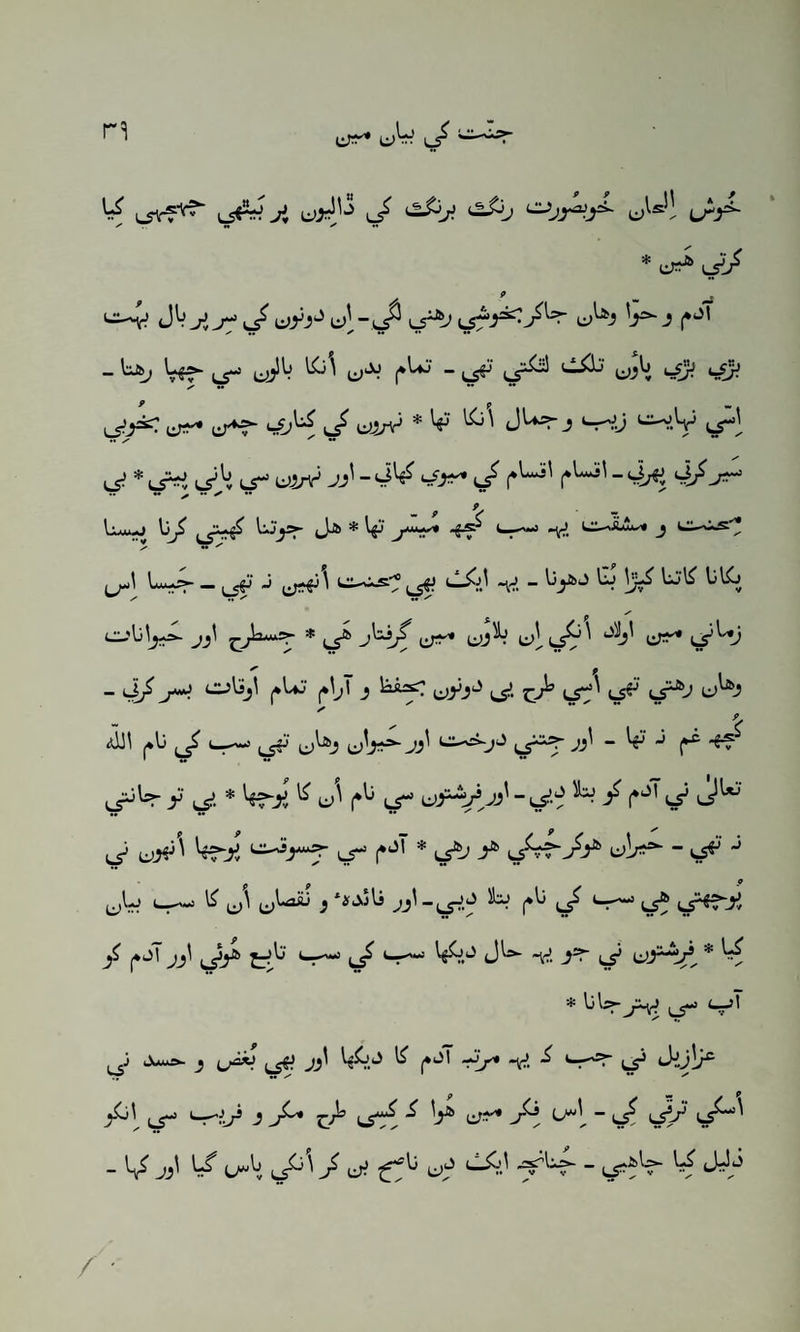 جنّت کی بیان میں ۲۹
خوش الحان خوبصورت رنگ برنگ کی ڈالیوں پر بیٹھی چہچہی کیا
کرتی ہیں *
آدم و حوّا وہاں جاکر بیخوفی رہنی لگی - ان دونوں کی سر پر بال بہت
بڑی بڑی پانوں تلک لٹکتی تھی - تمام بدن انکا بالوں سی چھپا رہتا -
اسی نہایت زیب و جمال انکا تھا * نہروں کی کناری چمن میں بیخوفی
سیر کرتی پھرتی - اقسام اقسام کی میوی کھاتی - اور نہروں سی پانی پیتی * نی
محنت و مشقت یہ سب کچھ میسر تھا * ہل جوتنا کھیتی کرنا بسنا
پکانا کھانا کوٹنا دھونا - یہ ایک بھی محنت انھیں نہ تھی - جیسا اس
زمانی میں اولاد انکی ان بلاؤں میں گرفتار ہی * جسطرح اور حیوانات
وہاں رہتی تھی اسی طرح یی دونوں بیخطا و آرام تمام اوقات بسر کرتی -
کچھ غم نہ تھا - اور جتنی درخت اور حیوان وہاں تھی سب کی نام اللہ
تعالی نی آدم کو بتلا دیی - اور فرشتوں سی نام ان کا پوچھا * یی تو جانتی
نہ تھی - حیران ہوکر چپکی ہو رہی * آدم سی جسوقت پوچھا انھوں نی
پوچھتی ہی سب کی نام بتلا دیی - اور فائدہ و نقصان ان کا سب بیان
کیا * فرشتوں نی جو یہ حال دیکھا سب کی سب تابع ہوئی اور آدم کو
آپ سی بہتر جانا *
عزازیل نی جب کہ یہ مرتبہ آدم کا دیکھا اور بھی بغض و حسد نی
اسکی ترقی کی - اس فکر میں ہوا کہ کسی طرح مکر و فریب سی انکو
ذلیل کیا چاہیی - چنانچہ ایک دن ناصح بن کر انکی پاس گیا اور کہا -